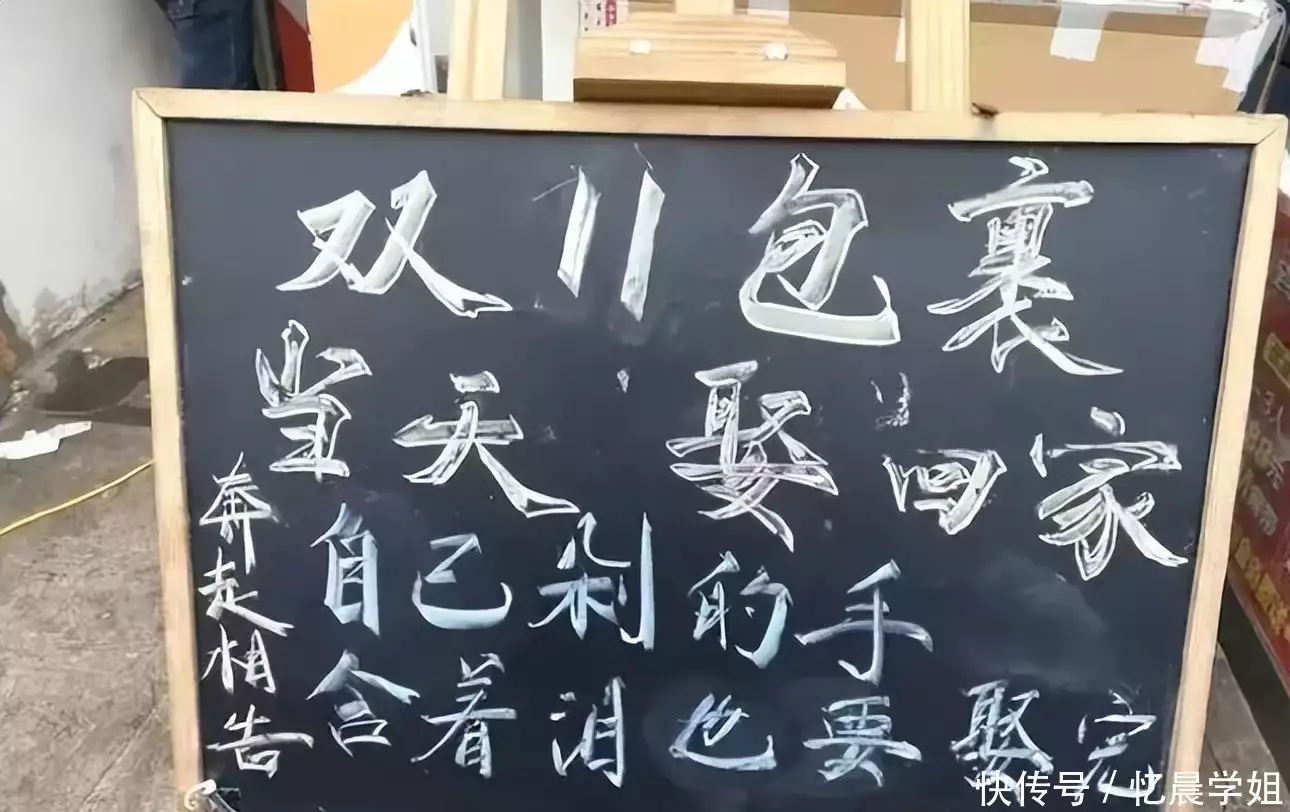 双11包裹
当天娶回家
自己剁的手
含着泪也要娶完
奔走相告
快传号/忆晨学姐